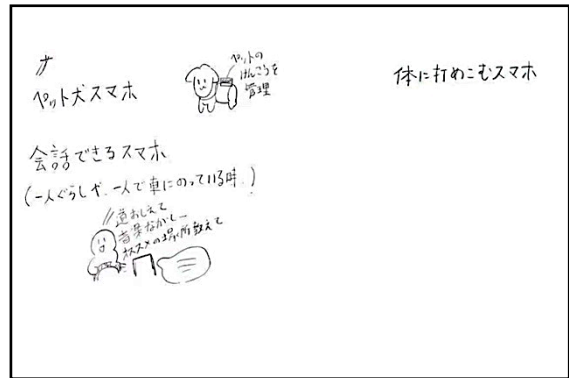 ペット犬スマホ
ペットの
けんこうを
管理
体に打めこむスマホ
会話できるスマホ
(一人ぐらしや、一人で車にのっている時。)
道おしえて
音楽ながしてー
オススメの場所教えて